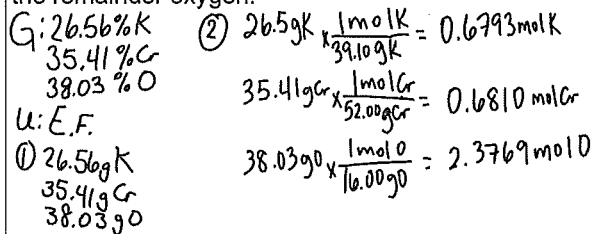 the remainder oxygen.
G: 26.56%K
35.41%Cr
38.03%O
U: E.F.
① 26.56gK
35.41gCr
38.03gO
② 26.5gK x 1molK/39.10gK = 0.6793molK
35.41gCr x 1molCr/52.00gCr = 0.6810molCr
38.03gO x 1molO/16.00gO = 2.3769molO